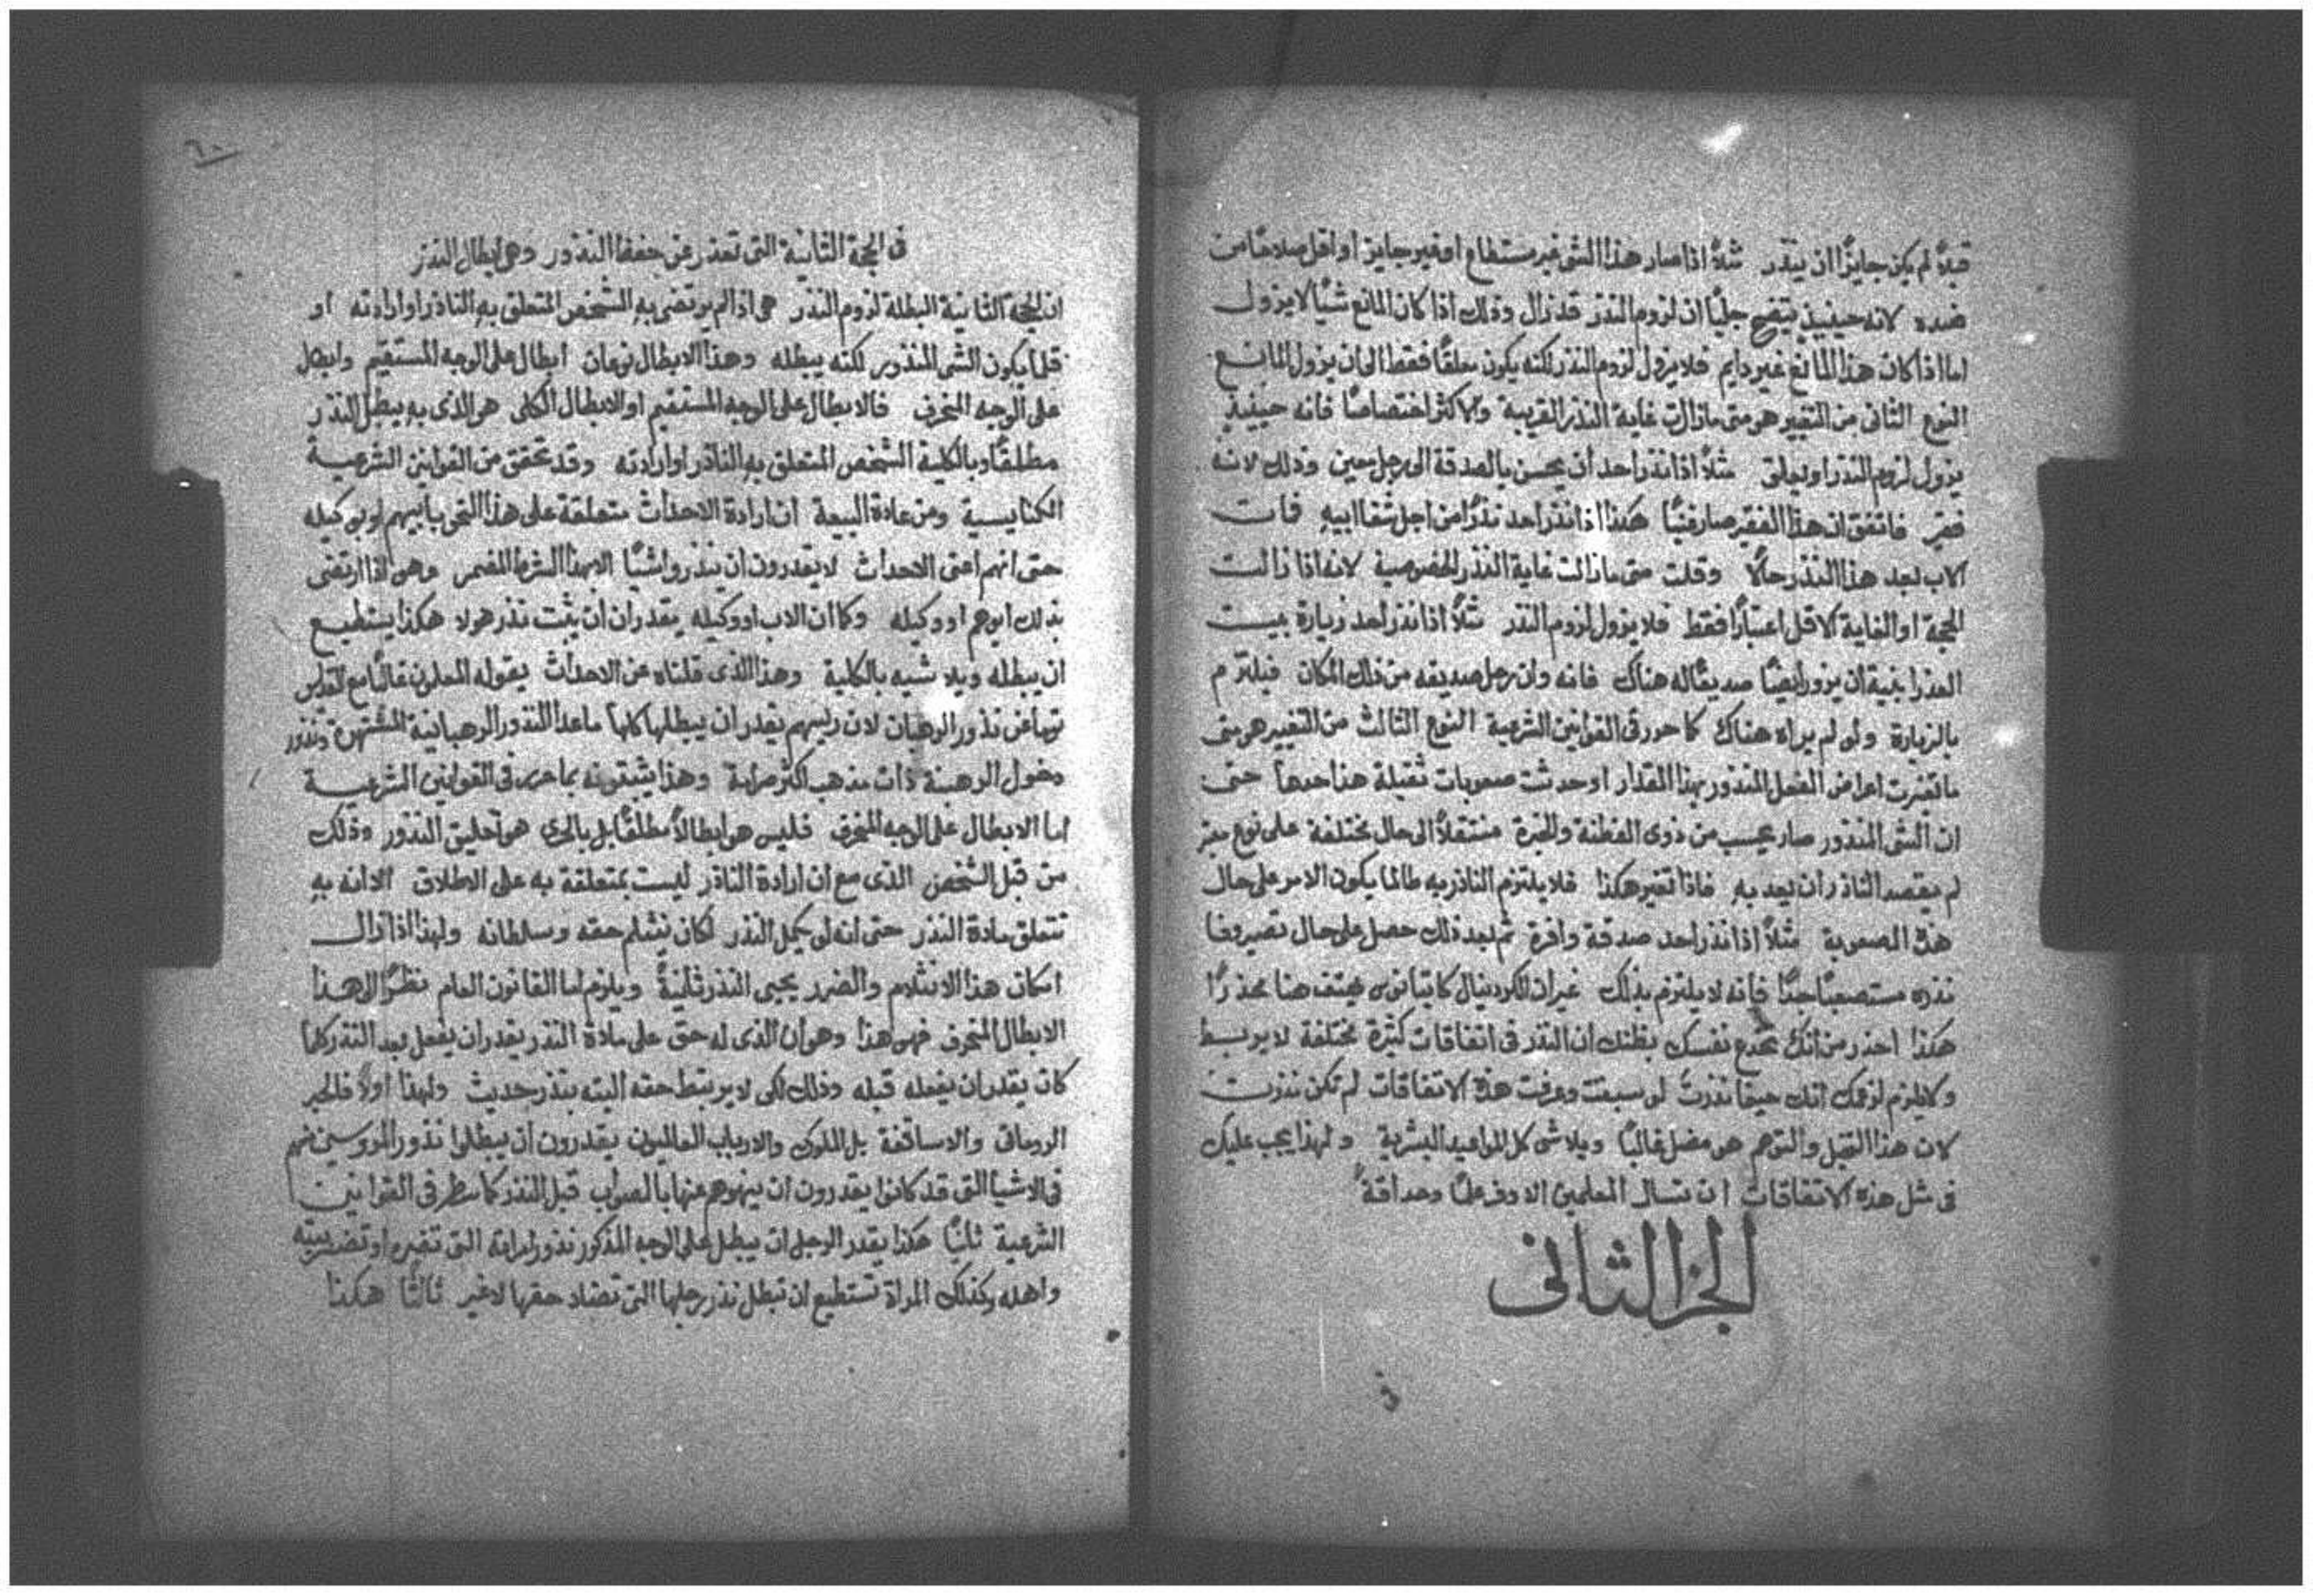 قبلاً لم يكن جايزًا ان ينذر مثلاً اذا صار هذا الشى غير مستطاع او غير جايز او اقل صلاحًا من
ضده لانه حينيذ يتضح جليًا ان لزوم النذر قد زال وذلك اذا كان المانع شيًا لا يزول
اما اذا كان هذا المانع غير دايم فلا يزول لزوم النذر لكنه يكون معلقًا فقط الى ان يزول المانع
النوع الثانى من التغيير هو متى ما زالت غاية النذر القريبة والاكثر اختصاصًا فانه حينيذٍ
يزول لزوم النذر او يعلق مثلاً اذا نذر احد ان يحسن بالصدقة الى رجل معين وذلك لانه
فقير فاتفق ان هذا الفقير صار غنيًا هكذا اذا نذر احد نذرًا من اجل شفا ابيه فات
الاب بعد هذا النذر حالاً وقلت متى ما زالت غاية النذر الخصوصية لانه اذا زالت
الحجة او الغاية الاقل اعتبارًا فقط فلا يزول لزوم النذر مثلاً اذا نذر احد زيارة بيت
العذرا بنية ان يزور ايضًا صديقًا له هناك فانه وان رحل صديقه من ذلك المكان فيلتزم
بالزيارة ولو لم يراه هناك كما حرر فى القوانين الشرعية النوع الثالث من التغيير هو متى
ما تغيرت اعراض الفعل المنذور بهذا المقدار او حدثت صعوبات ثقيلة هذا حدها حتى
ان الشى المنذور صار يحسب من ذوى الفطنة والخبرة منتقلاً الى حال مختلفة على نوع
لم يقصد الناذر ان يعد به فاذا تغير هكذا فلا يلتزم الناذر به طالما يكون الامر على حال
هذه الصعوبة مثلاً اذا نذر احد صدقة وافرة ثم بعد ذلك حصل على حال تصير وفا
نذره مستصعبًا جدًا فانه لا يلتزم بذلك غير ان الكردينال كايتانوس يهتف هنا محذرًا
هكذا احذر من انك تخدع نفسك بظنك ان النذر فى اتفاقات كثيرة مختلفة لا يربط
ولا يلزم لزعمك انك حينما نذرت لو سبقت وعرفت هذه الاتفاقات لم تكن نذرت
لان هذا التخيل والتوهم هو مضل غالبًا ويلاشى كل المواعيد البشرية ولهذا يجب عليك
فى مثل هذه الاتفاقات ان تسال المعلمين الاوفر علمًا وحداقة
الجز الثانى
فى
٦٠
فى الحجة الثانية التى تعذر عن حفظ النذور وهى ابطال النذر
ان الحجة الثانية المبطلة لزوم النذر هى اذا لم يرتضى به الشخص المتعلق به الناذر او ارادته او
قلما يكون الشى المنذور لكنه يبطله وهذا الابطال نوعان ابطال على الوجه المستقيم وابطال
على الوجه المنحرف فالابطال على الوجه المستقيم او الابطال الكلى هو الذى به يبطل النذر
مطلقًا وبالكلية الشخص المتعلق به الناذر او ارادته وقد تحقق من القوانين الشرعية
الكنايسية ومن عادة البيعة ان ارادة الاحداث متعلقة على هذا النحو بابيهم او بوكيله
حتى انهم اعنى الاحداث لا يقدرون ان ينذروا شيًا الا بهذا الشرط المضمر وهو اذا ارتضى
بذلك ابوهم او وكيله وكما ان الاب او وكيله يقدران ان يثبت نذر هولا هكذا يستطيع
ان يبطله ويلاشيه بالكلية وهذا الذى قلناه عن الاحداث يقوله المعلمون غالبًا مع القديس
توما عن نذور الرهبان لان ريسهم يقدر ان يبطلها كلها ما عدا النذور الرهبانية المشتهرة ونذور
دخول الرهبنة ذات مذهب اكثر صرامة وهذا يثبتونه بما حرر فى القوانين الشرعية
اما الابطال على الوجه المنحرف فليس هو ابطالاً مطلقًا بل بالحرى هو تعليق النذور وذلك
من قبل الشخص الذى مع ان ارادة الناذر ليست بمتعلقة به على الاطلاق الا انه به
تتعلق مادة النذر حتى انه لو كمل النذر لكان ينثلم حقه وسلطانه ولهذا اذا زال
امكان هذا الانثلام والضرر يحيى النذر ثانيةً ويلزم اما القانون العام نظرًا الى هذا
الابطال المنحرف فهو هذا وهو ان الذى له حق على مادة النذر يقدر ان يفعل بعد النذر كلما
كان يقدر ان يفعله قبله وذلك لكى لا يرتبط حقه البته بنذر حديث ولهذا اولاً فالحبر
الرومانى والاساقفة بل الملوك والارباب العالميون يقدرون ان يبطلوا نذور المروسين منهم
فى الاشيا التى قد كانوا يقدرون ان ينهوهم عنها بالصواب قبل النذر كما سطر فى القوانين
الشرعية ثانيًا هكذا يقدر الرجل ان يبطل على الوجه المذكور نذور امراته التى تضره او تضر ببيته
واهله وكذلك المراة تستطيع ان تبطل نذر رجلها التى تضاد حقها لا غير ثالثًا هكذا